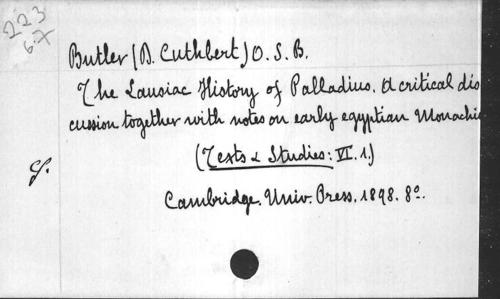 223
67
Butler (D. Cuthbert) O. S. B.
The Lausiac History of Palladius. A critical dis
cussion together with notes on early egyptian Monachi
(Texts & Studies: VI. 1.)
Cambridge. Univ. Press. 1898. 8°.